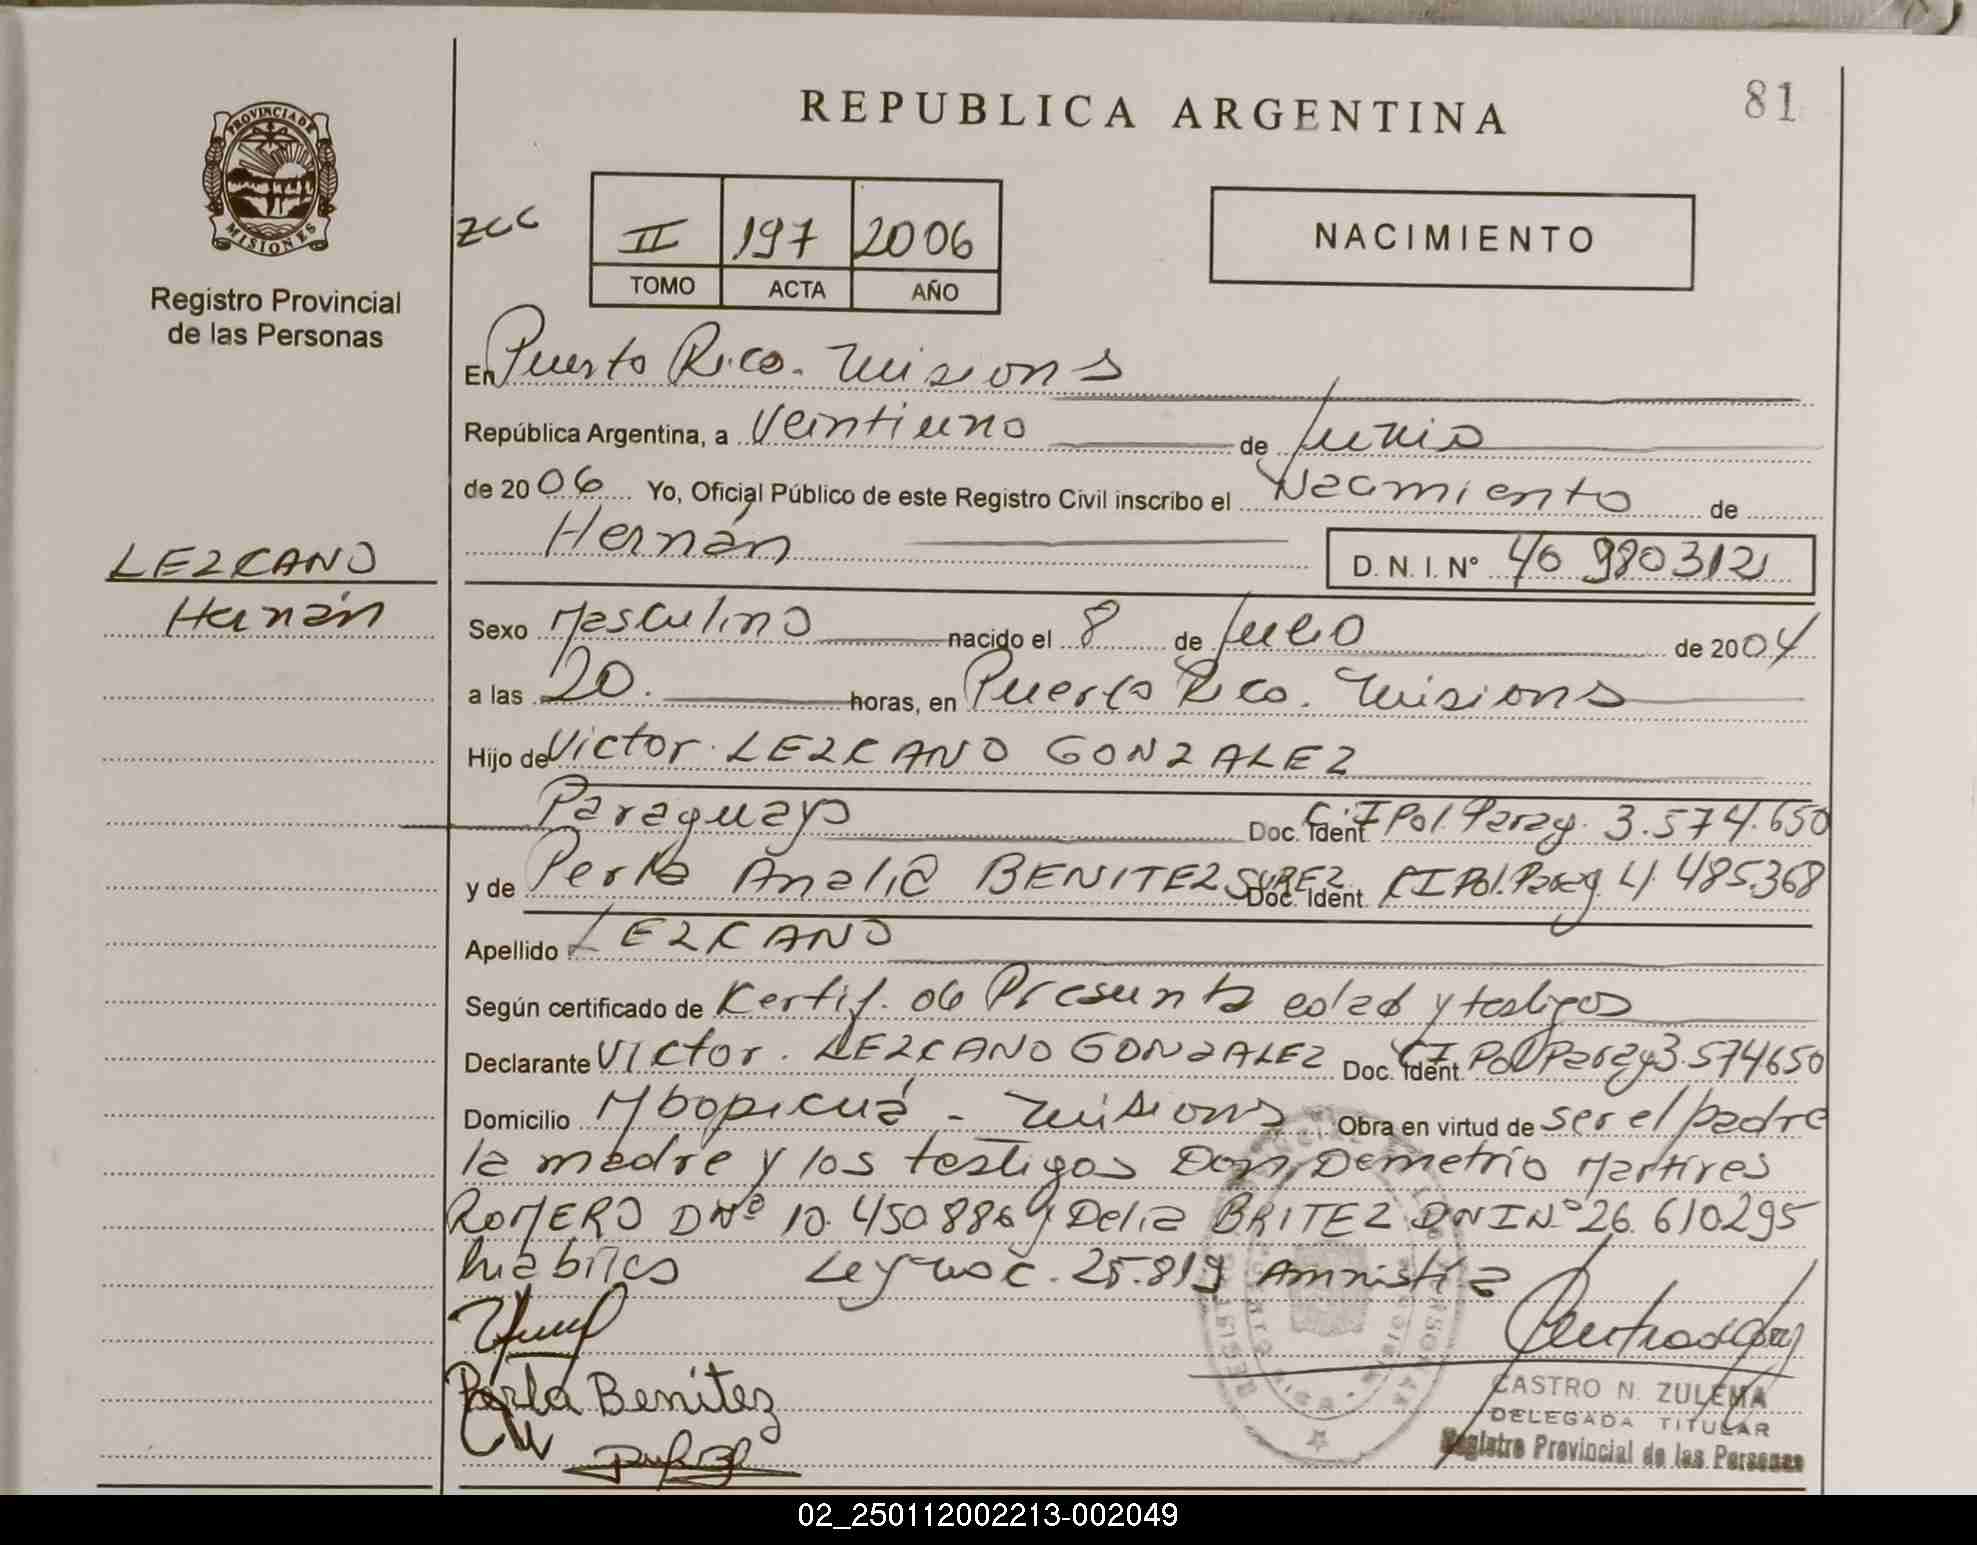 REPUBLICA ARGENTINA
81
PROVINCIA DE
MISIONES
Registro Provincial
de las Personas
ZCC
II 197 2006
TOMO ACTA AÑO
NACIMIENTO
En Puerto Rico. Misions
República Argentina, a Veintiuno de Junio
de 2006 Yo, Oficial Público de este Registro Civil inscribo el Nacimiento de
Hernán D. N. I. N° 40 980312
LEZCANO
Hernán
Sexo Masculino nacido el 8 de Julio de 2004
a las 20. horas, en Puerto Rico. Misions
Hijo de Victor. LEZCANO GONZALEZ
Paraguayo Doc. Ident C.I Pol. Parag. 3.574.650
y de Perla Analia BENITEZ Doc. Ident. CI Pol. Parag. 4.485.368
Apellido LEZCANO
Según certificado de Certif. de Presunta edad y testigos
Declarante Victor. LEZCANO GONZALEZ Doc. Ident. CI Pol Parag 3.574650
Domicilio Mbopicuá - Misions Obra en virtud de ser el padre
la madre y los testigos Don Demetrio Martires
ROMERO DNº 10.450886 y Delia BRITEZ DNI N.º 26.610295
habiles Ley 25.819 Amnistia
Perla Benitez
CASTRO N. ZULEMA
DELEGADA TITULAR
Registro Provincial de las Personas
02_250112002213-002049